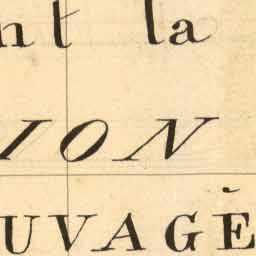 nt la
ION
UVAGÈ